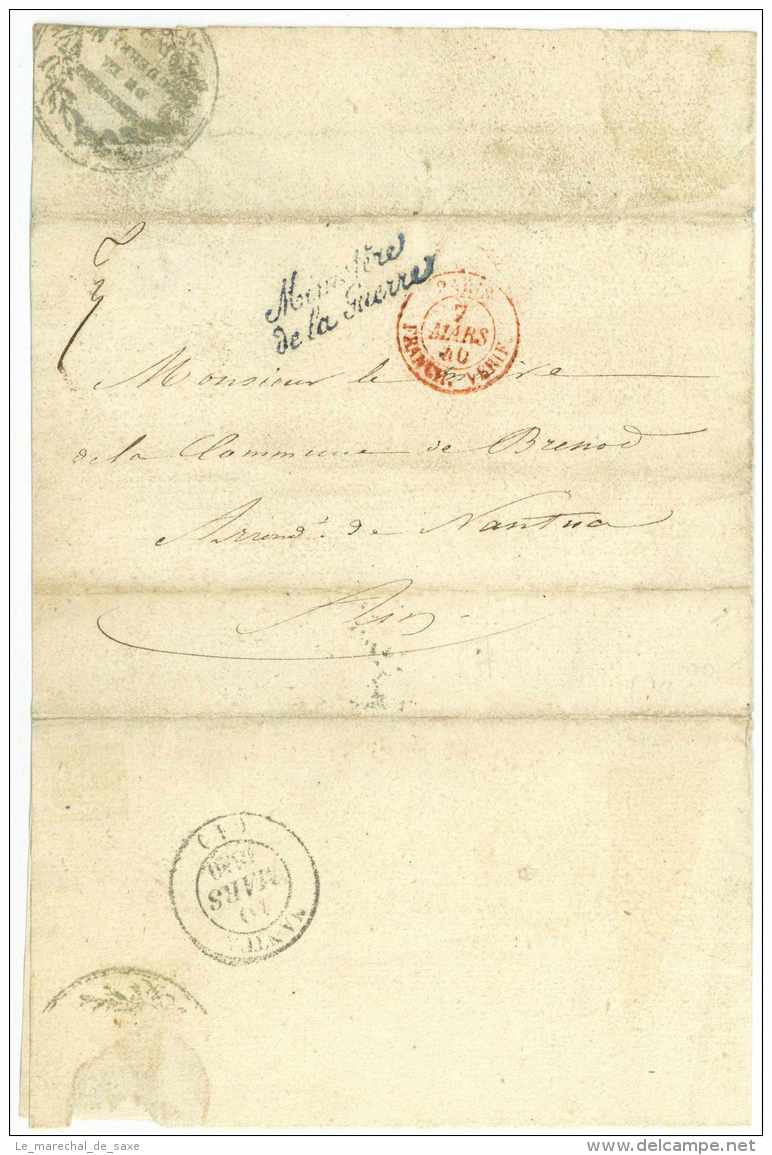 DE LA
Ministère
de la Guerre
PARIS
7
MARS
40
FRANCH. VERIF.
Monsieur le Maire
de la Commune de Brenod
Arrond.t de Nantua
Ain
(1)
1840
MARS
10
NANTUA
Le_marechal_de_saxe
delcampe.net